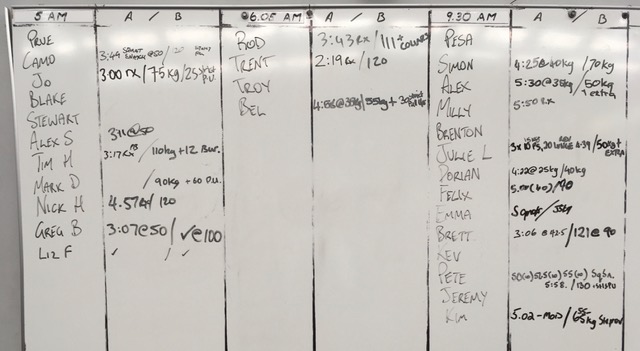 5 AM A / B
PRUE
CAMO 3:49 @50 /
JO 3:00 RX / 75kg / 25 strict P.U.
BLAKE
STEWART
ALEX S 3:11 @50
TIM H 3:17 RX / 110kg + 12 Bur.
MARK D / 90kg + 60 P.U.
NICK H 4.57 / 120
GREG B 3:07 @50 / ✓@100
LIZ F ✓ / ✓
6.05 AM A / B
ROD 3:43 RX / 111 +
TRENT 2:19 RX / 120
TROY
BEL 4:56 @35kg / 55kg +
9.30 AM A / B
PESA
SIMON 4:25 @40kg / 70kg
ALEX 5:30 @35kg / 50kg + extra
MILLY 5:50 RX
BRENTON
JULIE L 4.39 / 50kg + EXTRA
DORIAN 4:22 @25kg / 40kg
FELIX 5.00 (40) / 70
EMMA / 35kg
BRETT 3:06 @42.5 / 121 @ 90
KEV
PETE 50(10) 52.5(10) 55(10) SqSn.
5:58. / 130
JEREMY
KIM 5.02 - MOD / 65kg